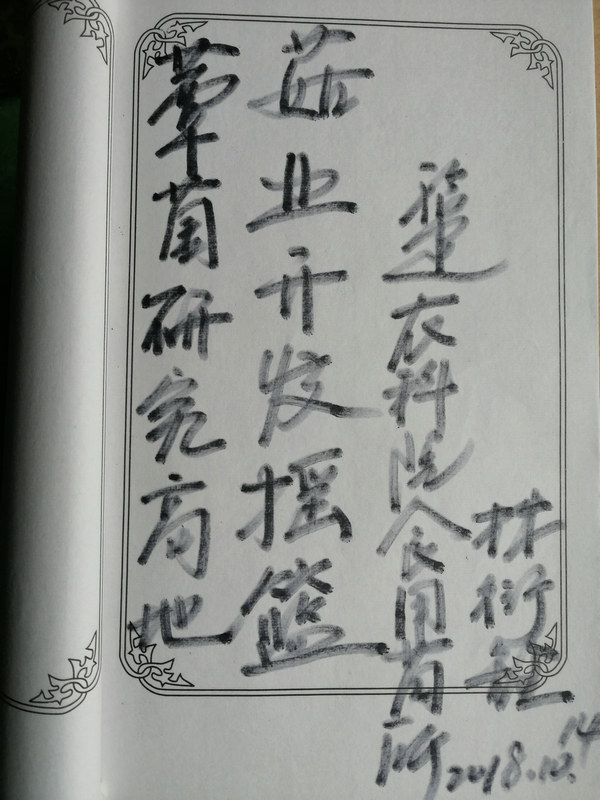 蕈菌研究高地
菇业开发摇篮
福建农科院食用菌所
林衍铨
2018.10.14